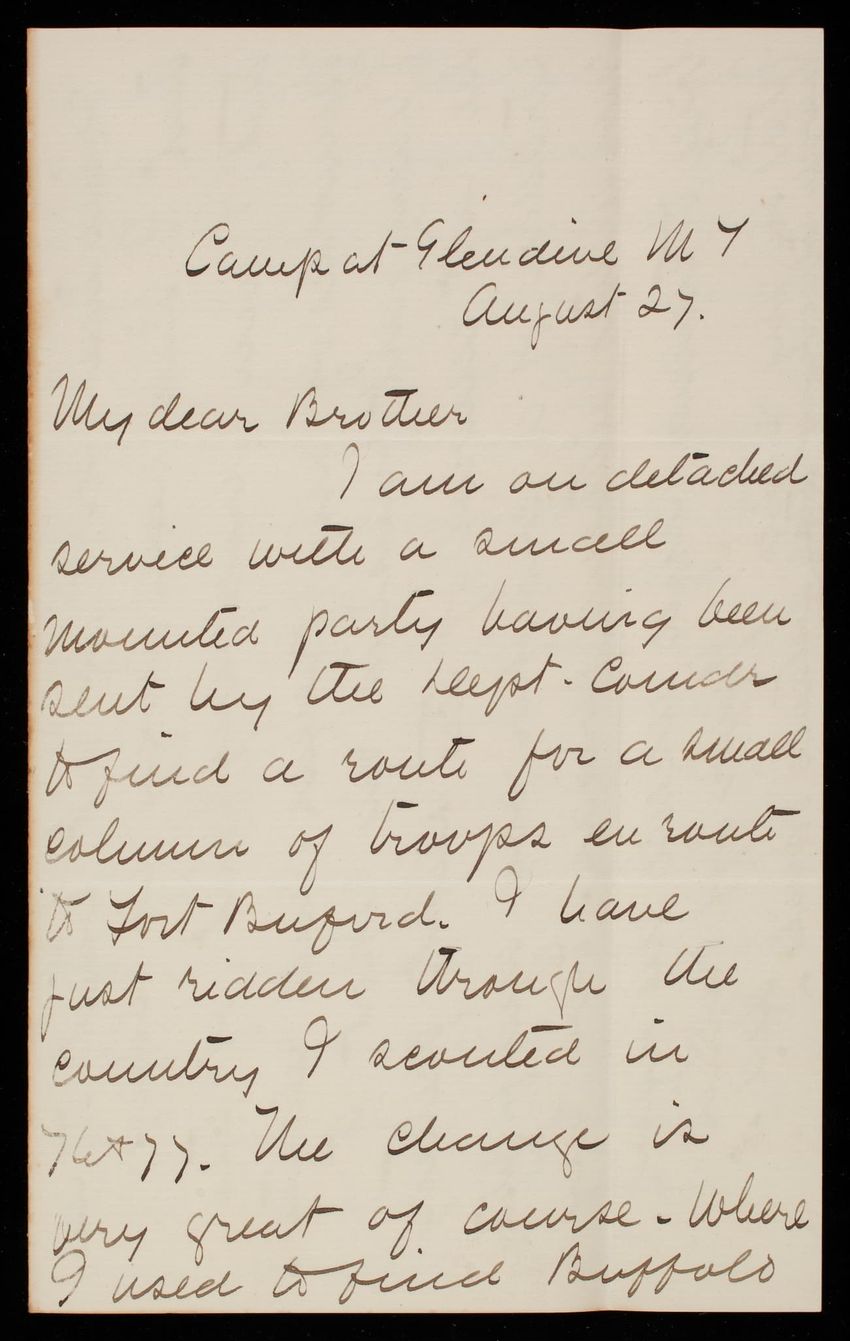 Camp at Glendive M T
August 27.
My dear Brother
I am on detached
service with a small
mounted party having been
sent by the Dept. Comdr
to find a route for a small
column of troops en route
to Fort Buford. I have
just ridden through the
country I scouted in
76 & 77. The change is
very great of course. Where
I used to find Buffalo